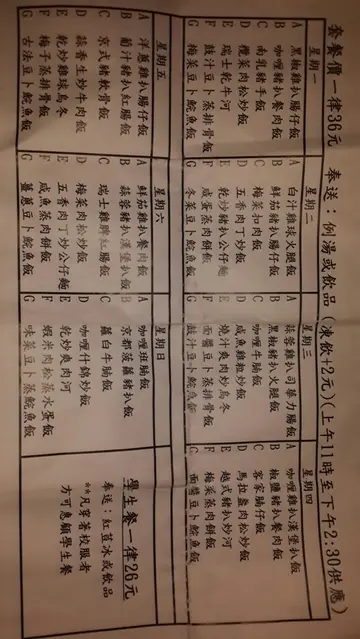 套餐價一律36元 奉送：例湯或飲品(凍飲+2元)(上午11時至下午2:30供應)
星期一
A 黑椒雞扒腸仔飯
B 咖喱豬扒餐肉飯
C 南乳豬手飯
D 欖菜肉松炒飯
E 瑞士乾牛河
F 豉汁豆卜蒸排骨飯
G 梅菜豆卜鯇魚飯
星期二
A 白汁雞球火腿飯
B 鮮茄豬扒腸仔飯
C 梅菜扣肉飯
D 五香肉丁炒飯
E 乾炒豬扒公仔麵
F 咸蛋蒸肉餅飯
G 冬菜豆卜鯇魚飯
星期三
A 蒜蓉雞扒司華力腸飯
B 黑椒豬扒火腿飯
C 咖喱牛腩飯
D 咸魚雞粒炒飯
E 燒汁爽肉炒烏冬
F 面醬豆卜蒸排骨飯
G 豉汁豆卜蒸鯇魚飯
星期四
A 咖喱雞扒漢堡扒飯
B 椒鹽豬扒餐肉飯
C 客家腩仔飯
D 馬拉盞肉松炒飯
E 越式豬扒炒河
F 梅菜蒸肉餅飯
G 面醬豆卜鯇魚飯
星期五
A 洋蔥雞扒腸仔飯
B 葡汁豬扒紅腸飯
C 京式豬軟骨飯
D 蒜香生炒牛肉飯
E 乾炒雞球烏冬
F 梅子蒸排骨飯
G 古法豆卜鯇魚飯
星期六
A 鮮茄雞扒餐肉飯
B 蒜蓉豬扒漢堡扒飯
C 瑞士雞髀紅腸飯
D 梅菜肉松炒飯
E 五香肉丁炒公仔麵
F 咸魚蒸肉餅飯
G 薑蔥豆卜鯇魚飯
星期日
A 咖喱斑腩飯
B 京都菠蘿豬扒飯
C 蘿白牛腩飯
D 咖喱什錦炒飯
E 乾炒爽肉河
F 蝦米肉松蒸水蛋飯
G 味菜豆卜蒸鯇魚飯
學生餐一律26元
奉送：紅豆冰或飲品
**凡穿著校服者
方可惠顧學生餐